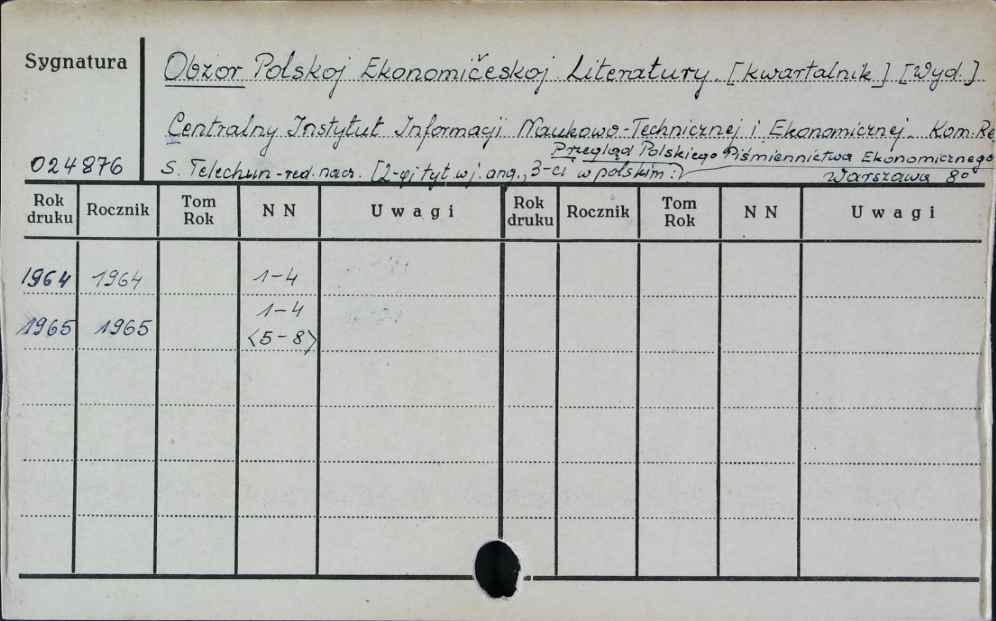 Sygnatura
Obzor Polskoj Ekonomičeskoj Literatury [kwartalnik] [Wyd.]
Centralny Instytut Informacji Naukowo-Technicznej i Ekonomicznej. Kom. Re
Przegląd Polskiego Piśmiennictwa Ekonomicznego
024876 S. Telechun-red. nacz. [2-gi tyt. w j. ang., 3-ci w polskim:]
Warszawa 8°
Rok druku Rocznik Tom Rok N N Uwagi Rok druku Rocznik Tom Rok N N Uwagi
1964 1964 1-4
1-4
1965 1965 <5-8>